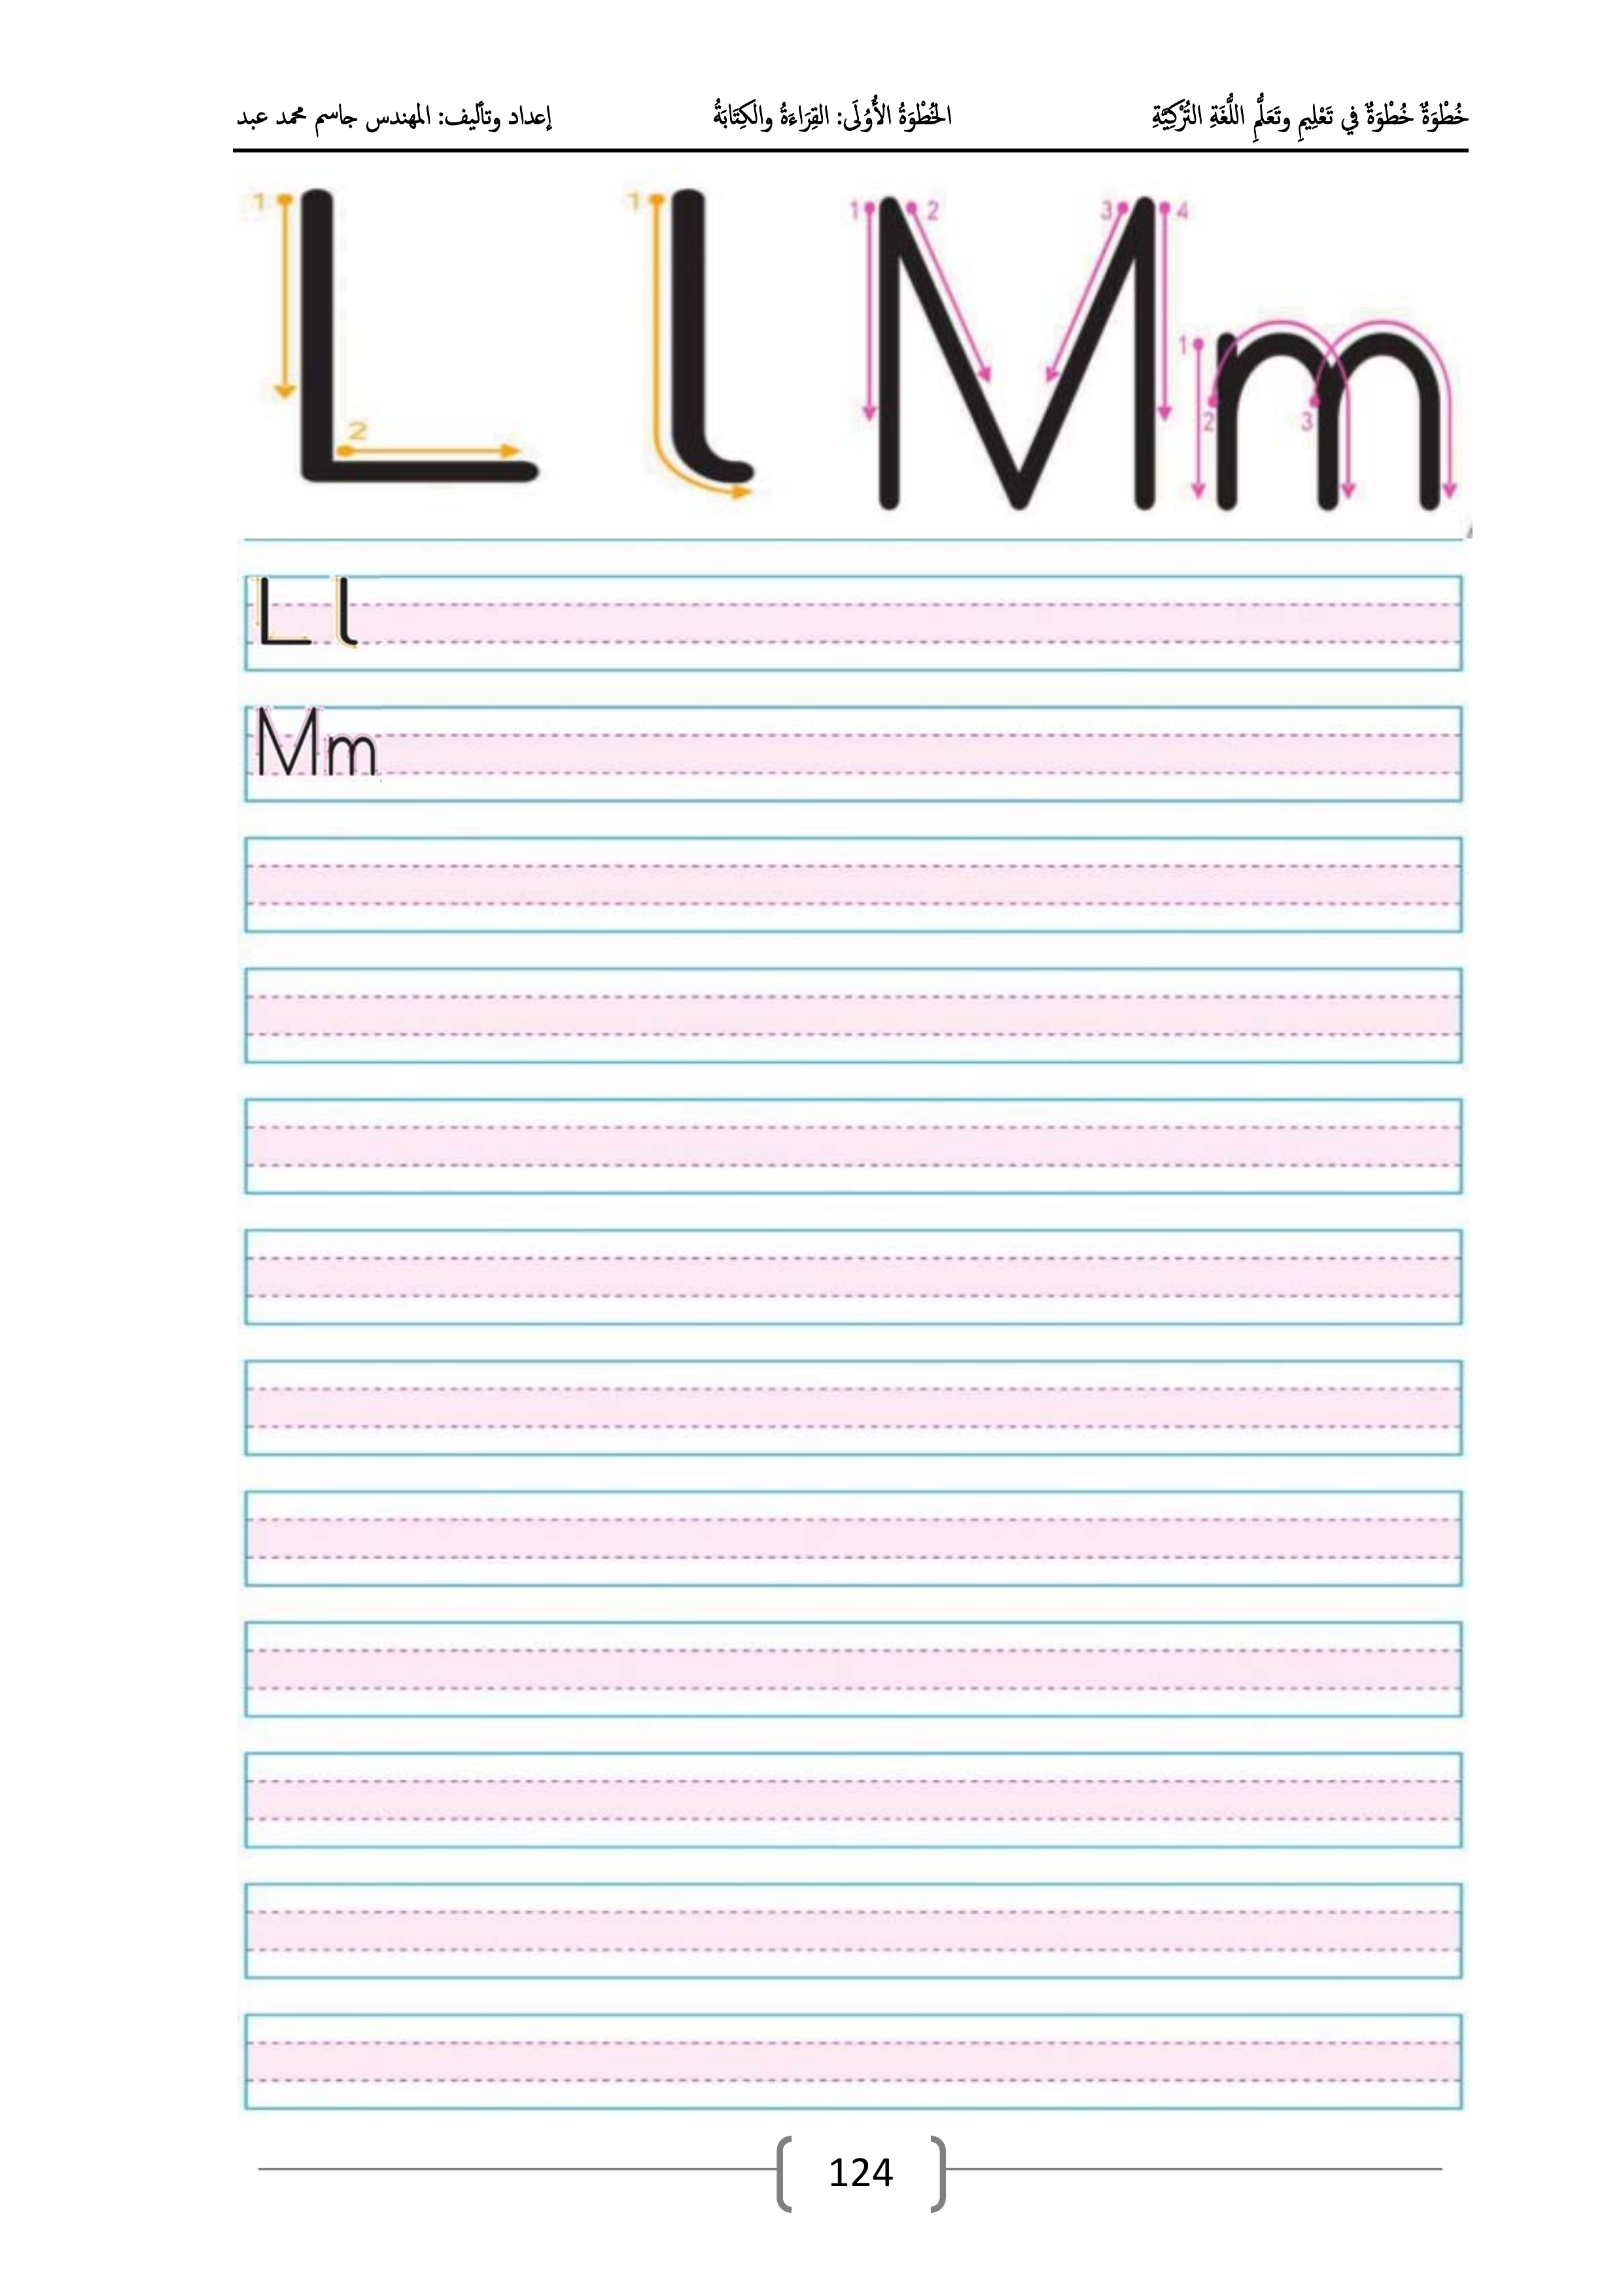 خُطْوَةٌ خُطْوَةٌ في تَعْلِيمِ وتَعَلُّمِ اللُّغَةِ التُّرْكِيَّةِ الخُطْوَةُ الأُوْلَى: القِرَاءَةُ والكِتَابَةُ إعداد وتأليف: المهندس جاسم محمد عبد
1 2 1 1 2 3 4 1 2 3
L l M m
L l
Mm
124